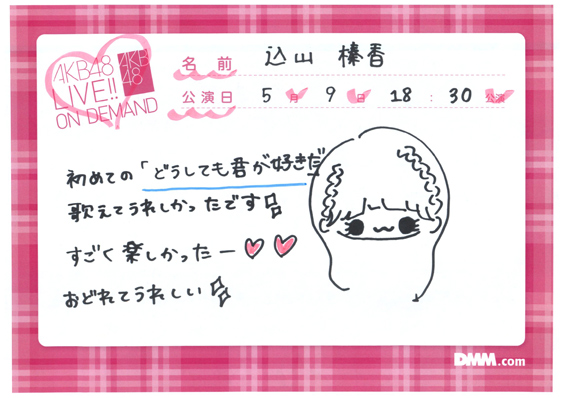 AKB48
LIVE!!
ON DEMAND
AKB
48
名前 込山 榛香
公演日 5月 9日 18:30 公演
初めての「どうしても君が好きだ」
歌えてうれしかったです
すごく楽しかったー
おどれてうれしい
DMM.com